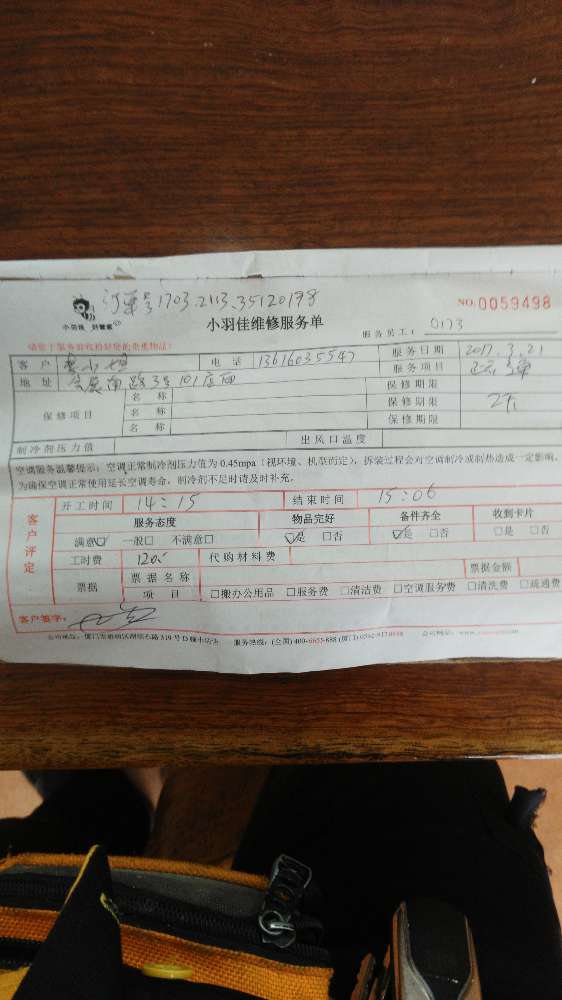 订单号1703.2113.35120198
小羽佳 好管家
小羽佳维修服务单
NO.0059498
服务员工: 0173
客户 小姐 电话 13616035547 服务日期 2017.3.21
地址 会展南路3号101店面 服务项目
保修期限
保修项目 名称 保修期限
名称 保修期限
名称
制冷剂压力值 出风口温度
空调服务温馨提示:空调正常制冷剂压力值为0.45mpa(视环境、机型而定),拆装过程会对空调制冷或制热造成一定影响,
为确保空调正常使用延长空调寿命,制冷剂不足时请及时补充。
客户评定
开工时间 14:15 结束时间 15:06
服务态度 物品完好 备件齐全 收到卡片
满意☑ 一般□ 不满意□ ☑是 □否 ☑是 □否 □是 □否
工时费 120 代购材料费
票据 票据名称 票据金额
项目 □搬办公用品 □服务费 □清洁费 □空调服务费 □清洗费 □疏通费
客户签字: